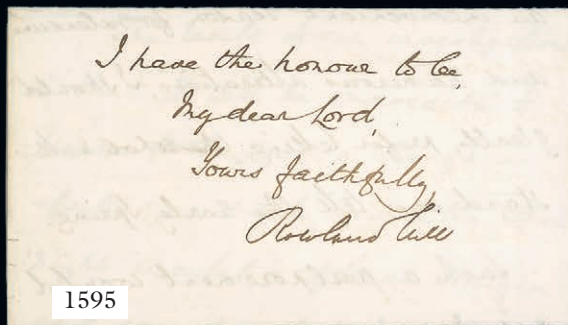 I have the honour to be,
My dear Lord,
Yours faithfully,
Rowland Hill
1595